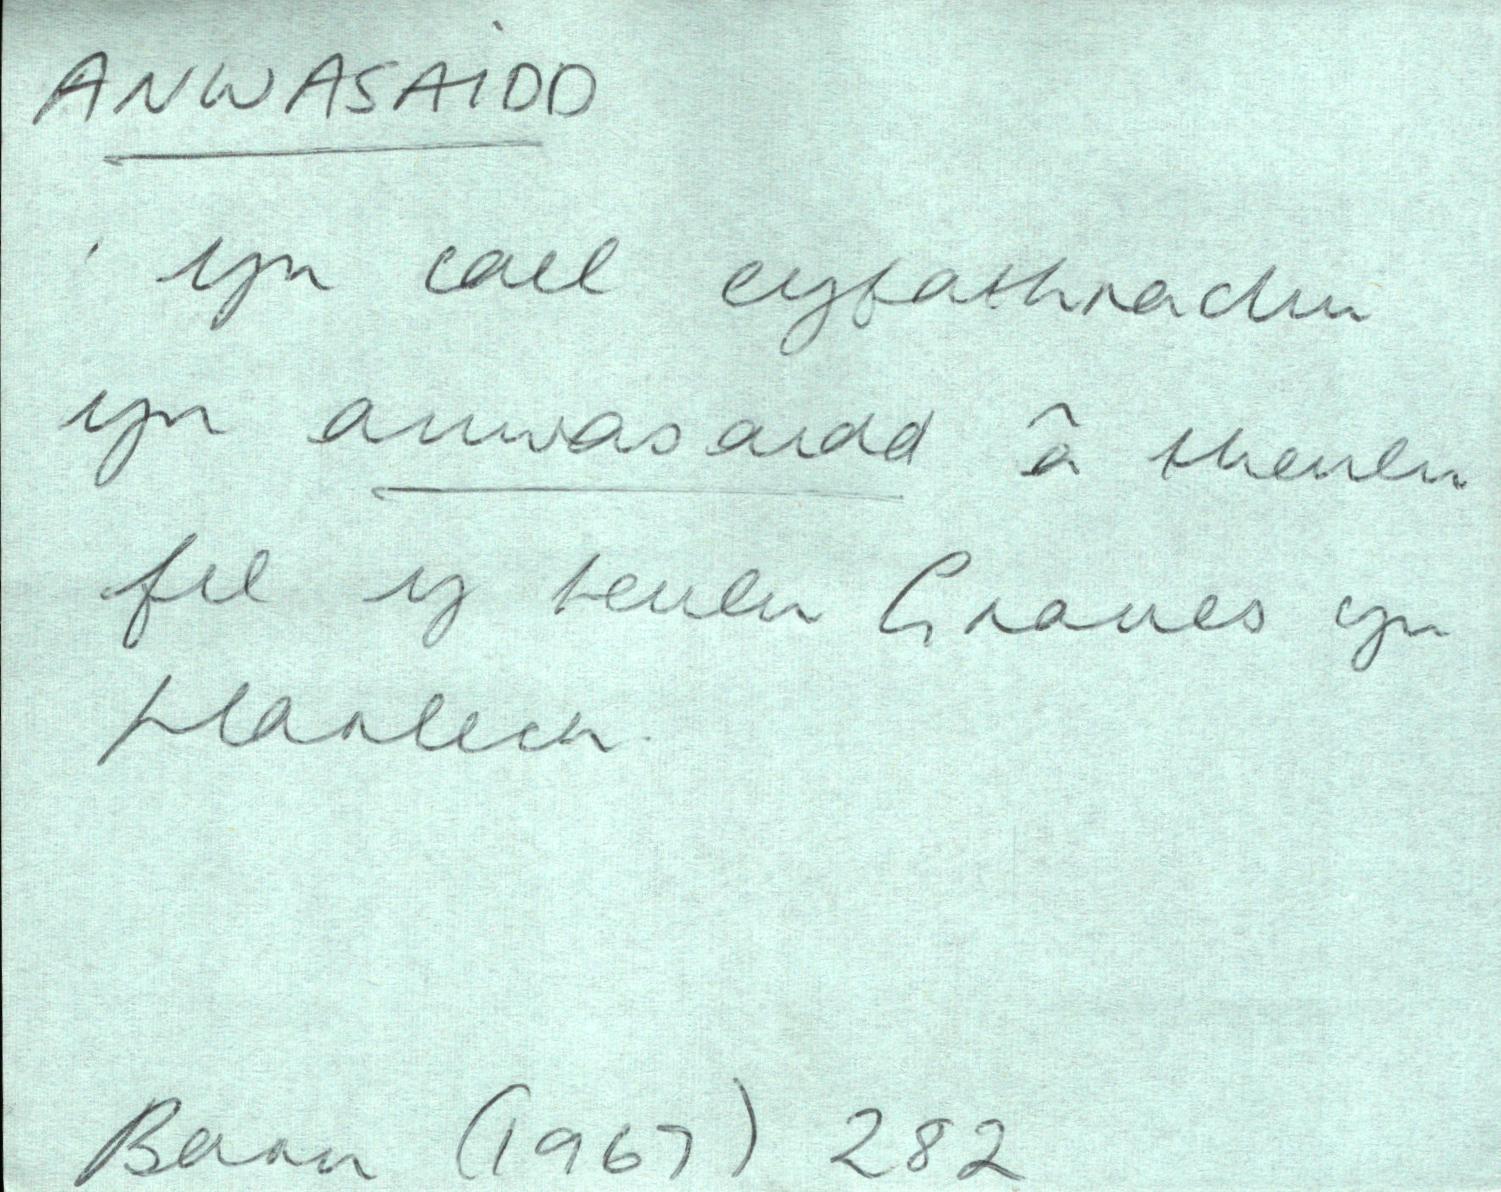 ANWASAIDD
' yn cael cyfathrachu
yn anwasaidd â theulu
fel y teulu Graves yn
Harlech.
Barn (1967) 282